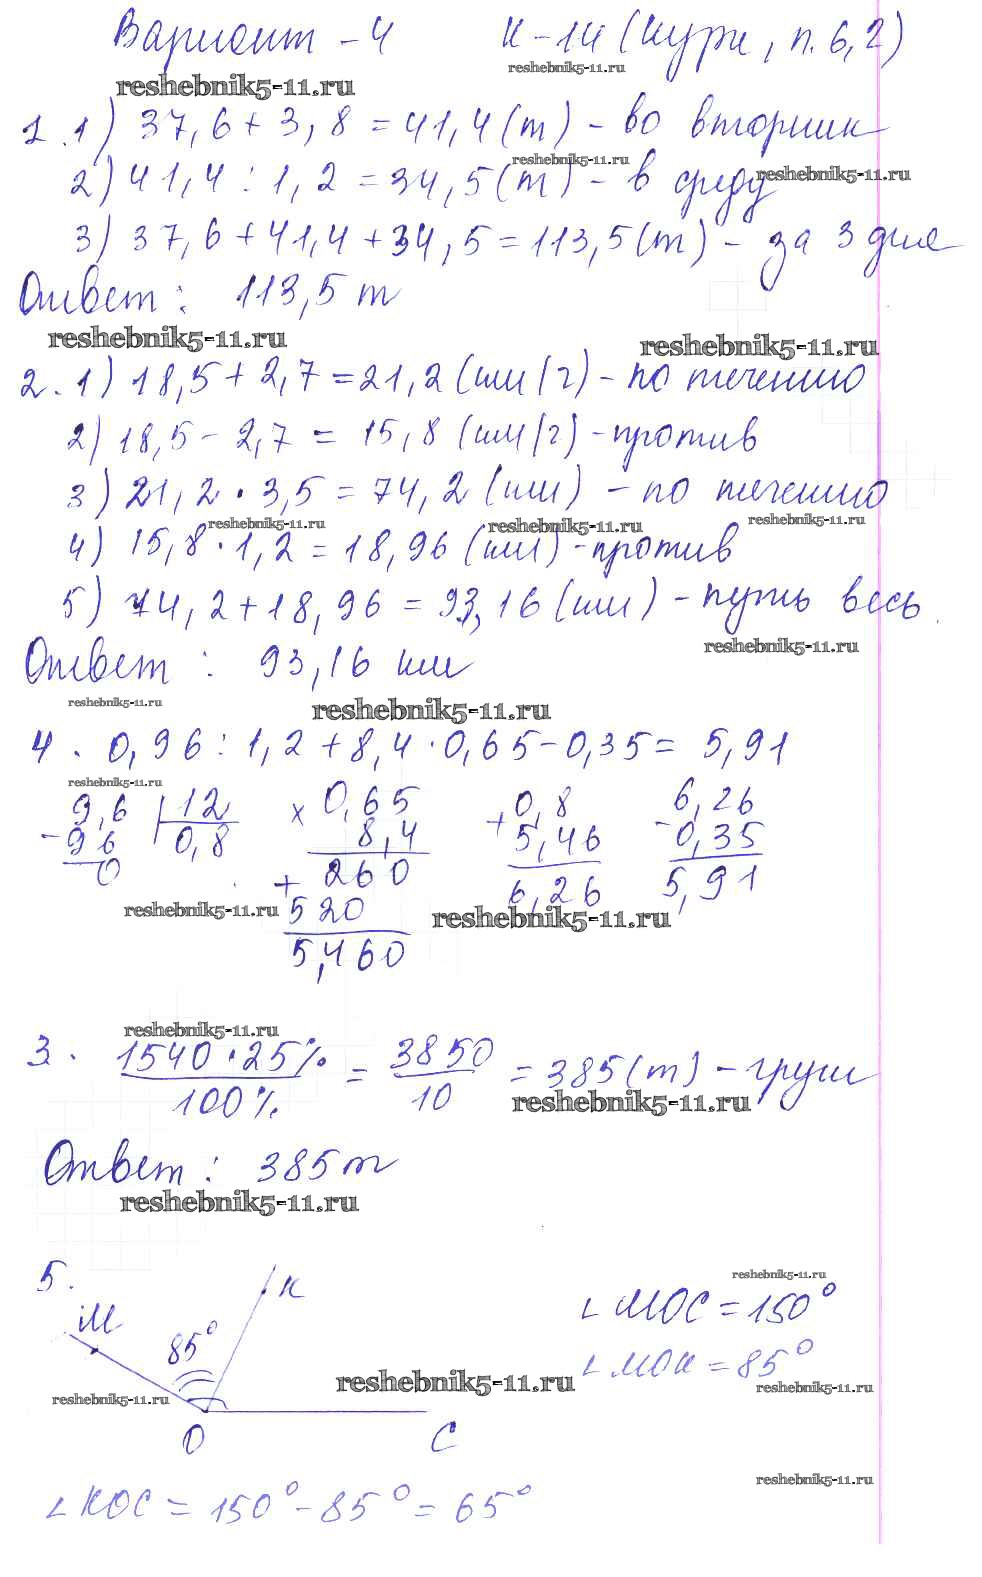 Вариант - 4 К - 14 (Кури, п. 6, 2)
reshebnik5-11.ru
reshebnik5-11.ru
1. 1) 37,6 + 3,8 = 41,4 (т) - во вторник
reshebnik5-11.ru
2) 41,4 : 1,2 = 34,5 (т) - в среду
reshebnik5-11.ru
3) 37,6 + 41,4 + 34,5 = 113,5 (т) - за 3 дня
Ответ: 113,5 т
reshebnik5-11.ru
reshebnik5-11.ru
2. 1) 18,5 + 2,7 = 21,2 (км/г) - по течению
2) 18,5 - 2,7 = 15,8 (км/г) - против
3) 21,2 · 3,5 = 74,2 (км) - по течению
reshebnik5-11.ru reshebnik5-11.ru reshebnik5-11.ru
4) 15,8 · 1,2 = 18,96 (км) - против
5) 74,2 + 18,96 = 93,16 (км) - путь весь
reshebnik5-11.ru
Ответ: 93,16 км
reshebnik5-11.ru reshebnik5-11.ru
4. 0,96 : 1,2 + 8,4 · 0,65 - 0,35 = 5,91
reshebnik5-11.ru
9,6 | 12 × 0,65 + 0,8 6,26
- 96 0,8 8,4 5,46 - 0,35
0 + 260 6,26 5,91
reshebnik5-11.ru reshebnik5-11.ru
520
5,460
reshebnik5-11.ru
3. 1540 · 25% / 100% = 3850 / 10 = 385 (т) - груш
reshebnik5-11.ru
Ответ: 385 т
reshebnik5-11.ru
5.
К
М
85°
О
С
reshebnik5-11.ru
∠ МОС = 150°
∠ МОК = 85°
reshebnik5-11.ru
reshebnik5-11.ru
reshebnik5-11.ru
reshebnik5-11.ru
∠ КОС = 150° - 85° = 65°